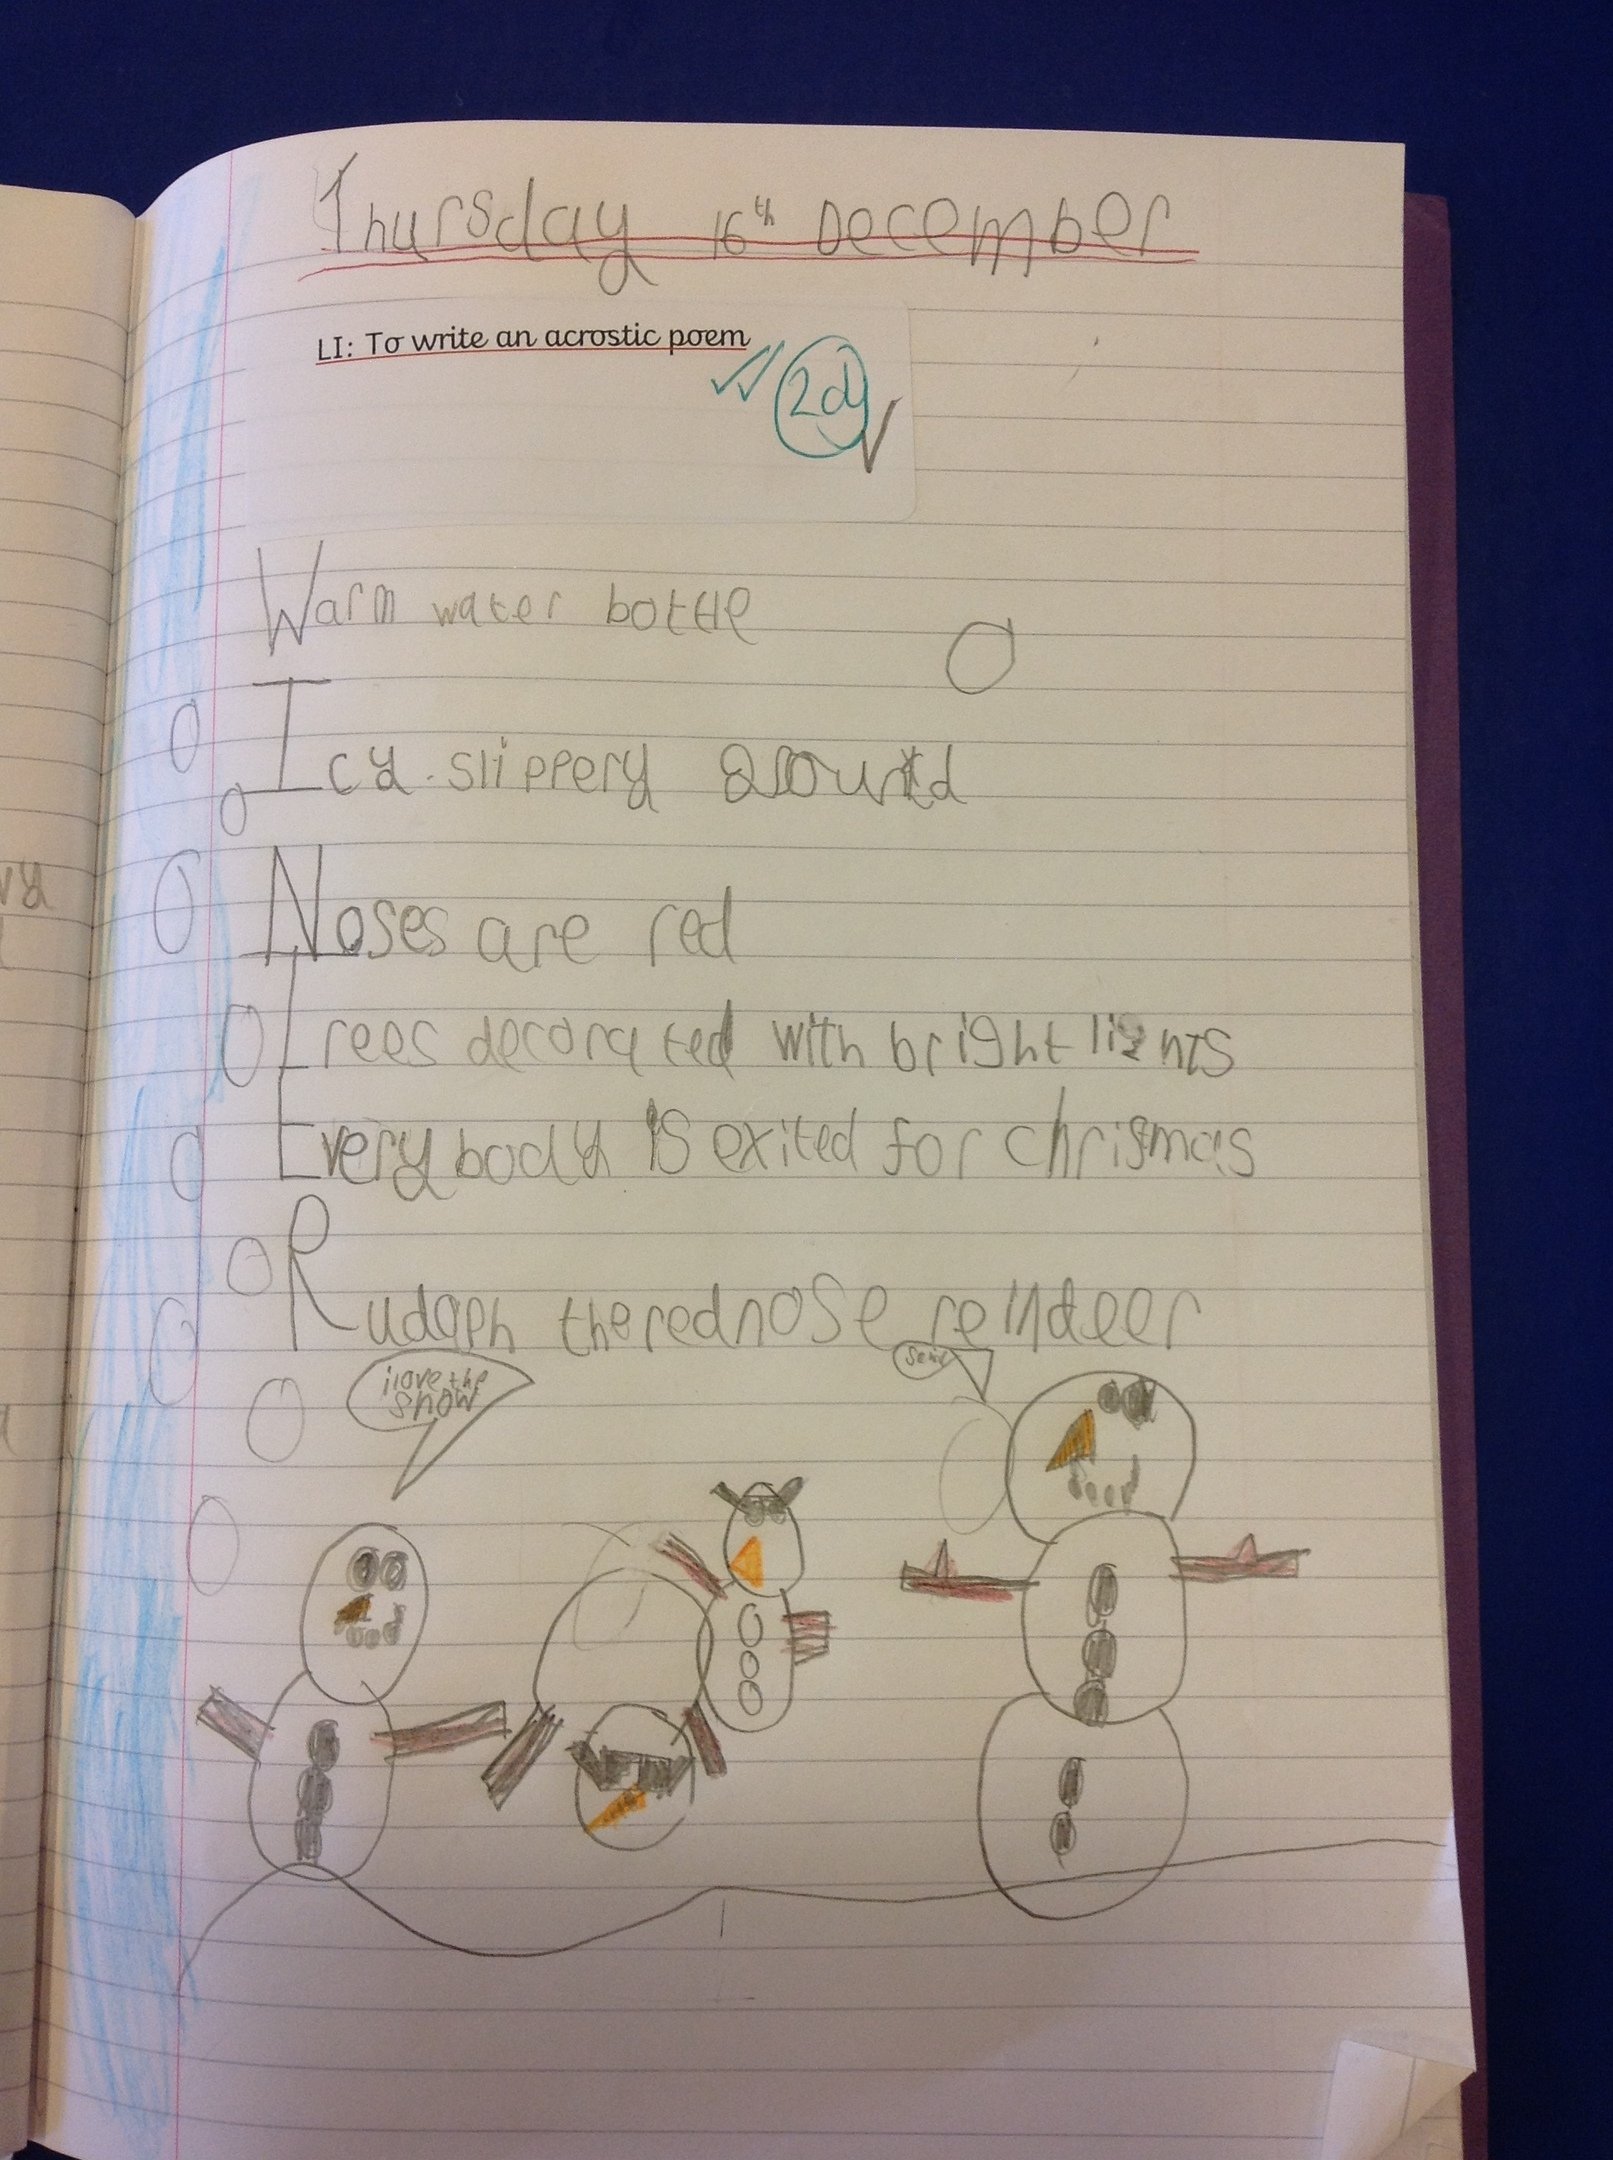 Thursday 16th December
LI: To write an acrostic poem
2d
Warm water bottle
Icy slippery
Noses are red
Trees decorated with bright lights
Everybody is exited for chrismas
Rudolph the red nose reindeer
i love the
snow